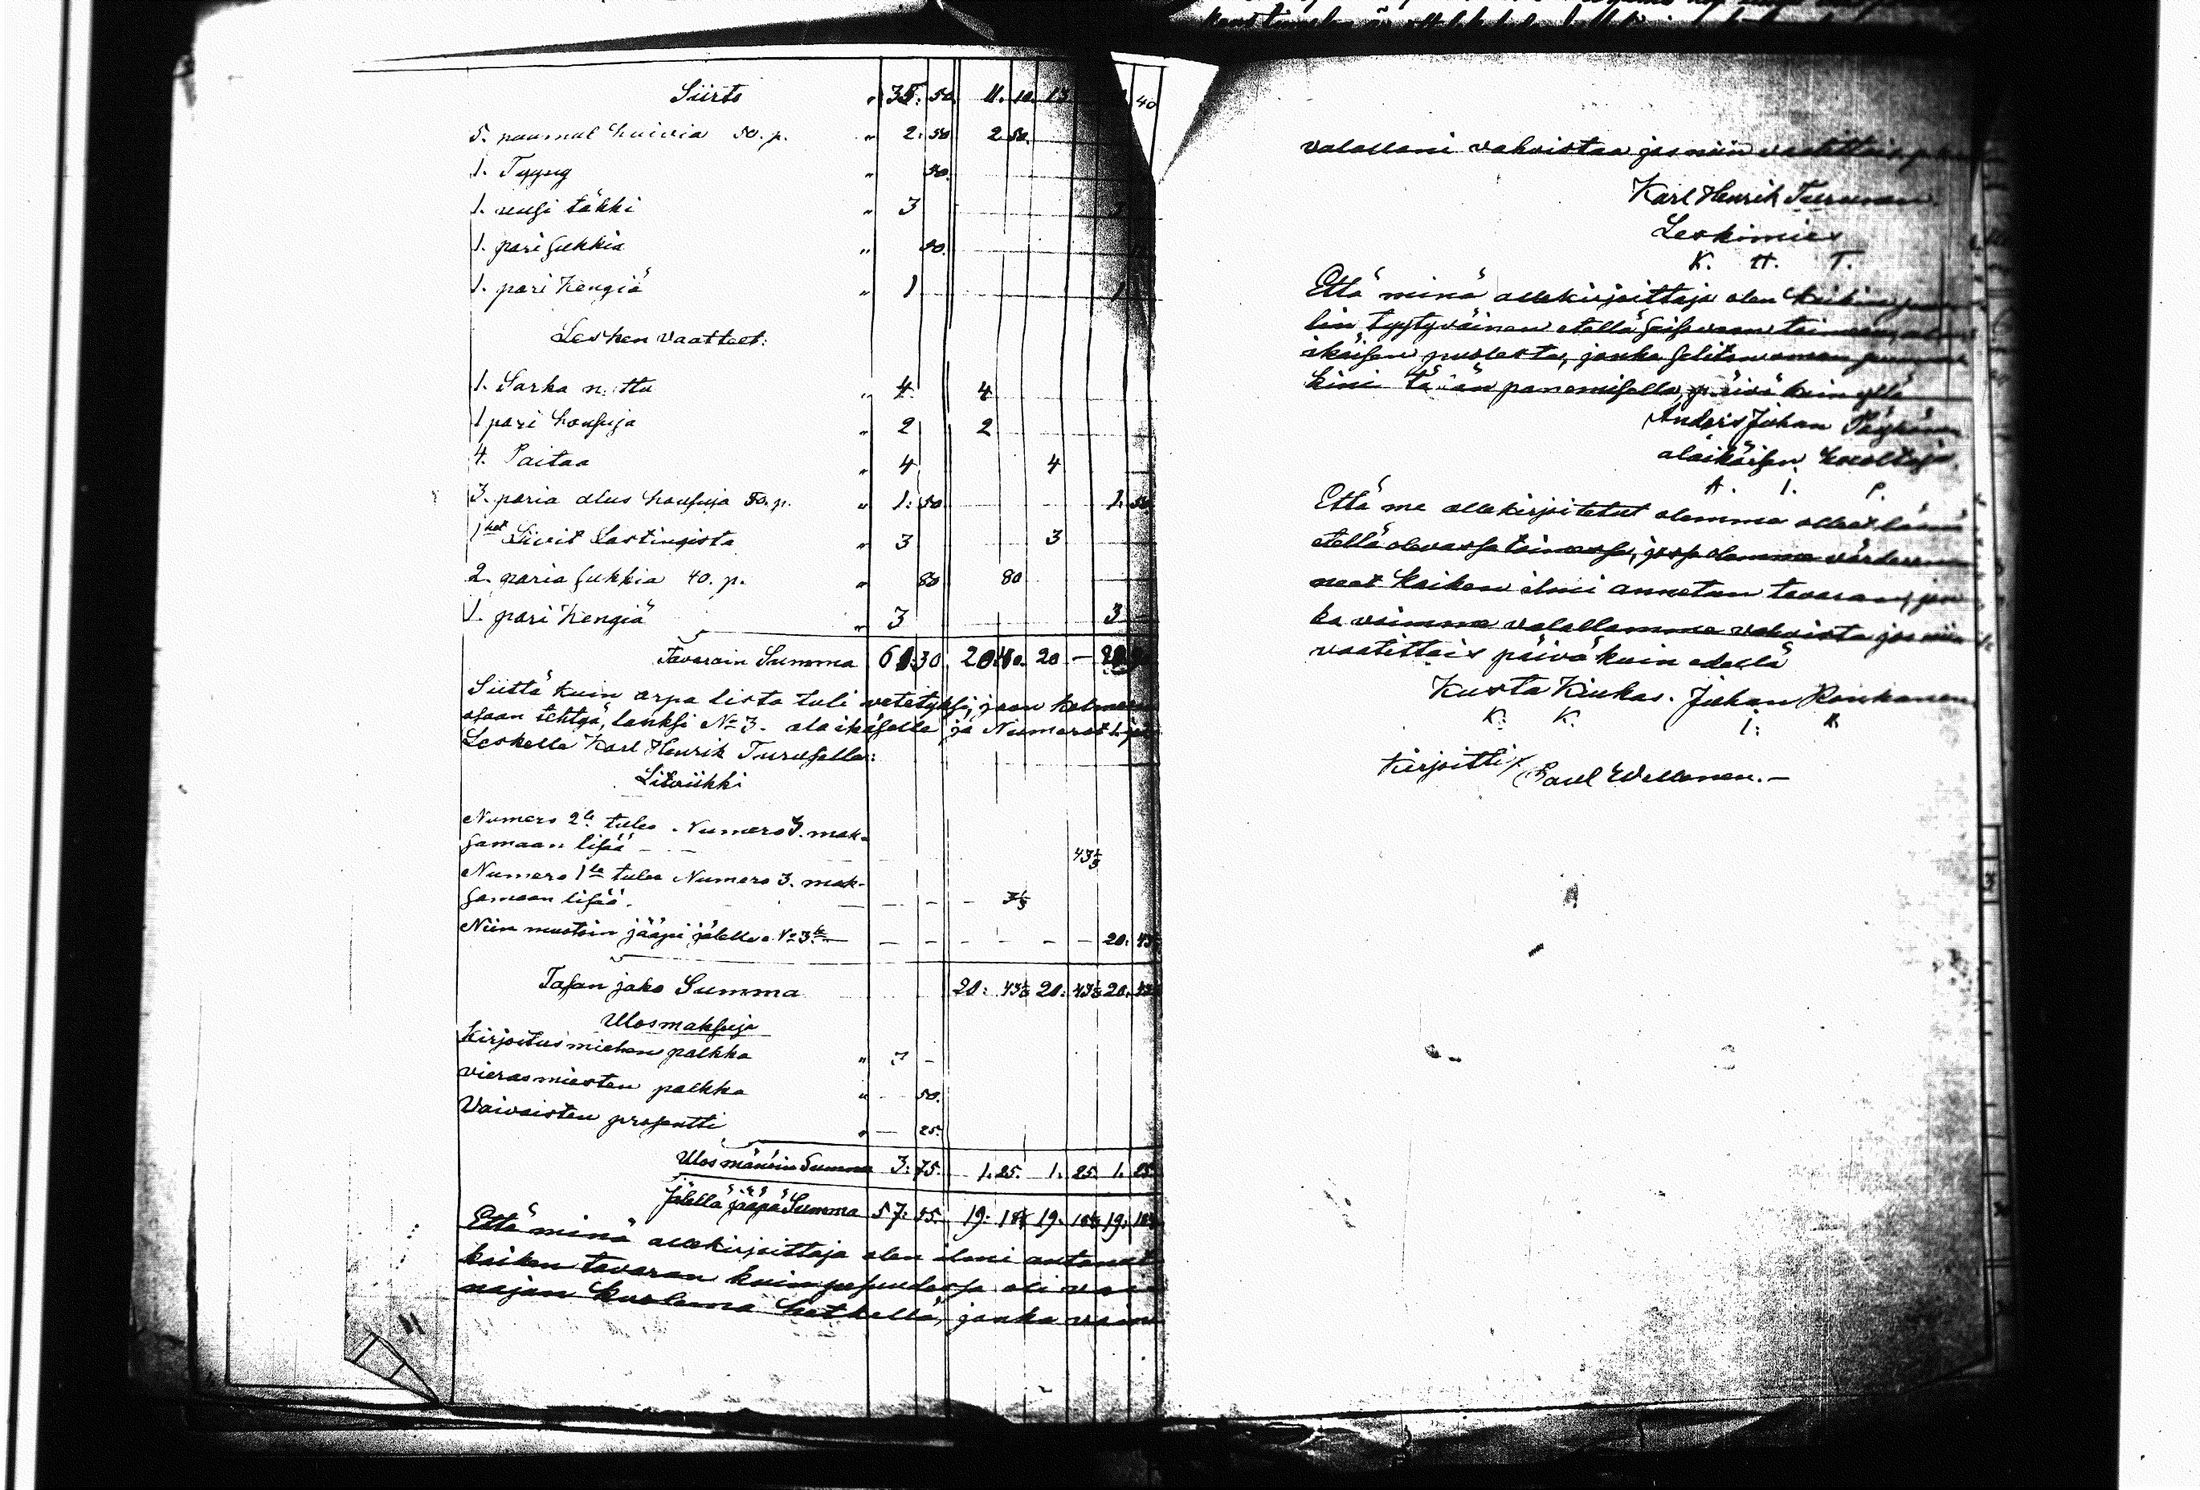 Siirto " 35. 50. 11. 10. 13 40
5. naumat huivia 50. p. " 2: 50 2 50.
1. Tyyny " 50.
1. uusi täkki " 3
1. pari sukkia " 50.
1. pari kengiä " 1 1
Lesken vaatteet:
1. Sarka n. ttu " 4. 4
1 pari housuja " 2 2
4. Paitaa " 4 4
3. paria alus housuja 50. p. " 1: 50 1. 50
1 Liivit Lastingista " 3 3
2. paria sukkia 40. p. " 80 80
1. pari kengiä " 3 3
Tavarain Summa 61. 30 20. 40. 20 —
Siittä kuin arpa lista tuli vetetyksi, joon kolmeen
osaan tehtyä, lanksi No 3. alaikäselle ja Numerot 1.
Leskelle Karl Henrik Turuselle:
Litviikki
Numero 2le tulee Numero 3. mak-
samaan lisää — 43⅓
Numero 1le tulee Numero 3. mak-
samaan lisää. — 3⅓
Niin muotoin jääpi jälelle No 3le — 20: 43
Tasan jako Summa 20: 43⅓ 20: 43⅓ 20: 43⅓
Ulosmaksuja
Kirjoitus miehen palkka " 3 —
vierasmiesten palkka " 50.
Vaivaisten prosentti " 25.
Ulos mänöin Summa 3: 75. 1. 25. 1. 25. 1. 25
Jälellä jääpä Summa 57: 55. 19. 18⅓ 19. 18⅓ 19. 18⅓
Että minä allekirjoittaja olen ilmi antanut
kaiken tavaran kuin pesuudessa oli vai-
najan kuolema hetkellä, jonka voin
valallani vahvistaa jos niin vaatittais
Karl Henrik Turunen.
Leskimies
K. H. T.
Että minä allekirjoittaja olen kaikin puo-
lin tyytyväinen etellä seisovaan toimeen, ala
ikäisen puolesta, jonka selitän oman puumer
kini tään panemisella, päivä kuin yllä
Anders Johan Pöyhönen
alaikäisen huoltaja.
A. I. P.
Että me allekirjoitetut olemma olleet läsnä
etellä olevassa toimessa, jossa olemma värderan
neet kaiken ilmi annetun tavaran, jon
ka voimma valallamma vahvista jos niin
vaatittais päivä kuin edellä
Kusta Kiukas. Johan Ronkanen
K. K. I: R
Kirjoitti Paul Vellonen. —